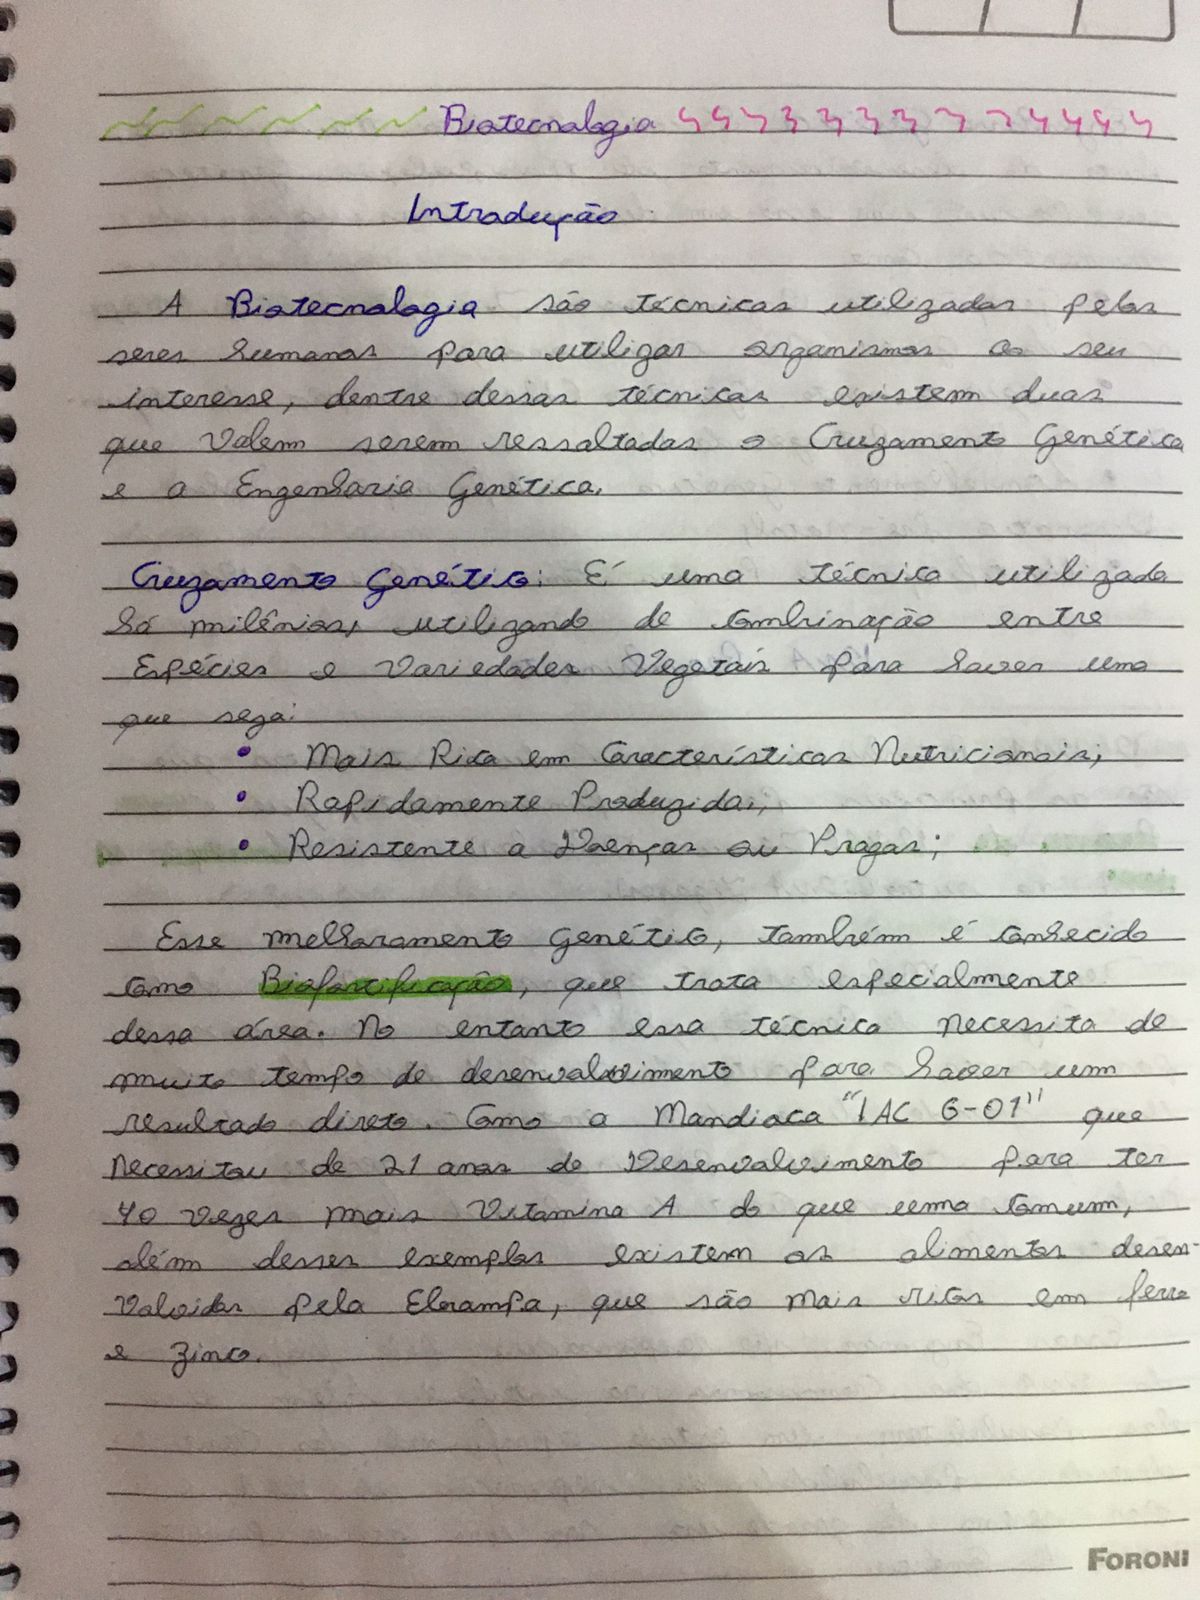 Biotecnologia
Introdução
A Biotecnologia são técnicas utilizadas pelos
seres humanos para utilizar organismos ao seu
interesse, dentre dessas técnicas existem duas
que valem serem ressaltadas o Cruzamento Genético
e a Engenharia Genética.
Cruzamento Genético: É uma técnica utilizada
há milênios, utilizando de combinação entre
Espécies e Variedades Vegetais para haver uma
que seja:
• Mais Rica em Características Nutricionais;
• Rapidamente Produzida;
• Resistente a Doenças ou Pragas;
Esse melhoramento genético, também é conhecido
como Biofortificação, que trata especialmente
dessa área. No entanto essa técnica necessita de
muito tempo de desenvolvimento para haver um
resultado direto. Como a Mandioca "IAC 6-01" que
necessitou de 21 anos de Desenvolvimento para ter
40 vezes mais Vitamina A do que uma comum,
além desses exemplos existem os alimentos desen-
volvidos pela , que são mais ricos em ferro
e zinco.
FORONI